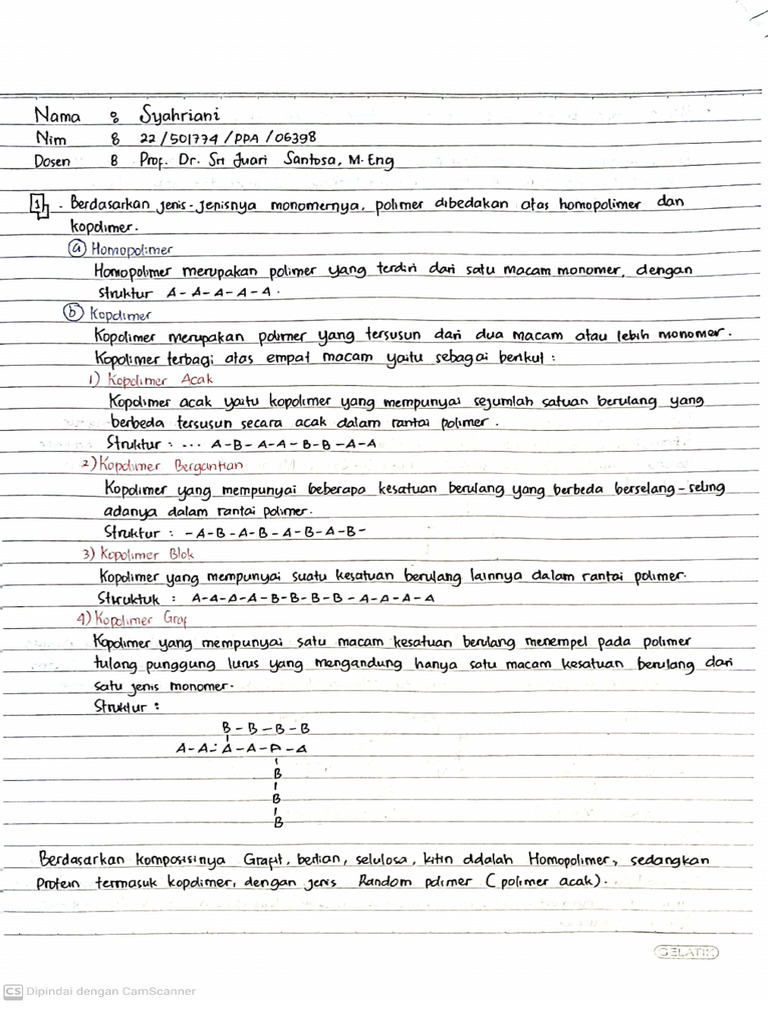 Nama : Syahriani
Nim : 22/501774/PPA/06398
Dosen : Prof. Dr. Sri Juari Santosa, M.Eng
1. Berdasarkan jenis-jenisnya monomernya, polimer dibedakan atas homopolimer dan
kopolimer.
a Homopolimer
Homopolimer merupakan polimer yang terdiri dari satu macam monomer, dengan
struktur A-A-A-A-A.
b Kopolimer
Kopolimer merupakan polimer yang tersusun dari dua macam atau lebih monomer.
Kopolimer terbagi atas empat macam yaitu sebagai berikut :
1) Kopolimer Acak
Kopolimer acak yaitu kopolimer yang mempunyai sejumlah satuan berulang yang
berbeda tersusun secara acak dalam rantai polimer.
Struktur : ... A-B-A-A-B-B-A-A
2) Kopolimer Bergantian
Kopolimer yang mempunyai beberapa kesatuan berulang yang berbeda berselang-seling
adanya dalam rantai polimer.
Struktur : -A-B-A-B-A-B-A-B-
3) Kopolimer Blok
Kopolimer yang mempunyai suatu kesatuan berulang lainnya dalam rantai polimer.
Struktuk : A-A-A-A-B-B-B-B-A-A-A-A
4) Kopolimer Graf
Kopolimer yang mempunyai satu macam kesatuan berulang menempel pada polimer
tulang punggung lurus yang mengandung hanya satu macam kesatuan berulang dari
satu jenis monomer.
Struktur :
B-B-B-B
A-A-A-A-A-A
B
B
B
Berdasarkan komposisinya Grafit, berlian, selulosa, kitin adalah Homopolimer, sedangkan
Protein termasuk kopolimer, dengan jenis Random polimer (polimer acak).
GELATIK
CS Dipindai dengan CamScanner